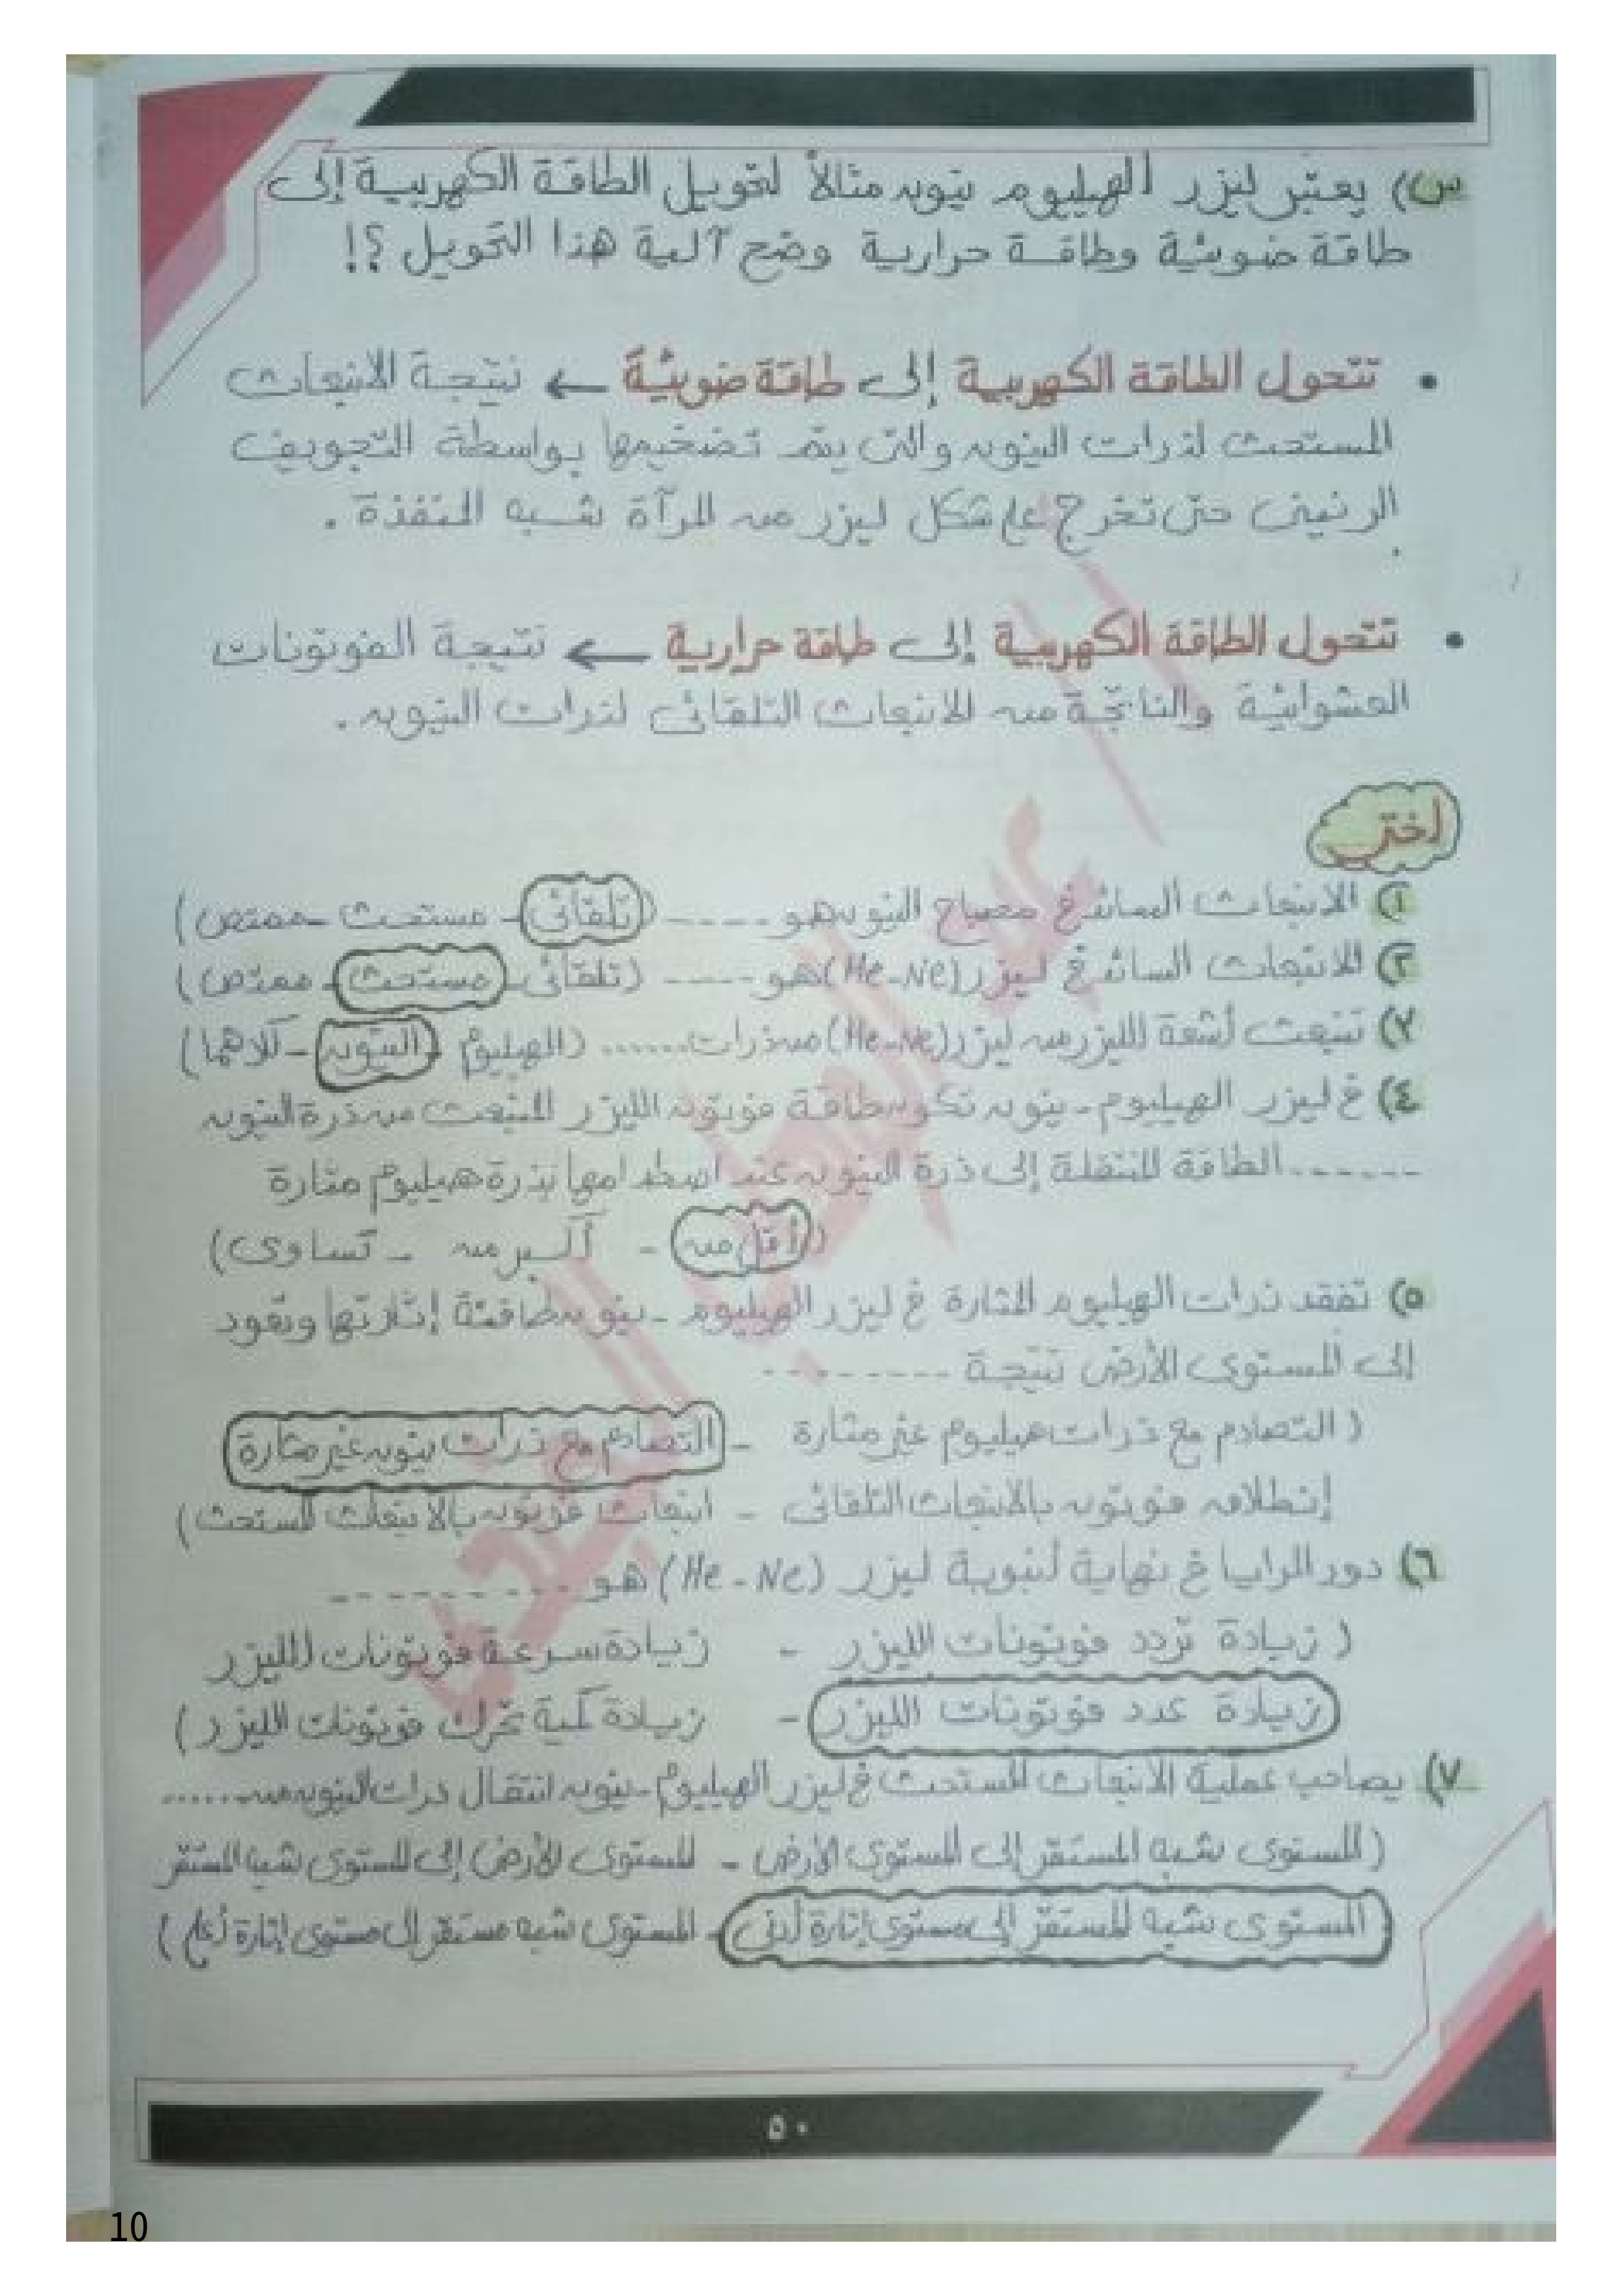 س) يعتبر ليزر الهيليوم نيون مثالاً لتحويل الطاقة الكهربية إلى
طاقة ضوئية وطاقة حرارية وضح آلية هذا التحويل ؟!
• تتحول الطاقة الكهربية إلى طاقة ضوئية ← نتيجة الانبعاث
المستحث لذرات النيون والتى يتم تضخيمها بواسطة التجويف
الرنينى حتى تخرج على شكل ليزر من المرآة شبه المنفذة .
• تتحول الطاقة الكهربية إلى طاقة حرارية ← نتيجة الفوتونات
العشوائية والناتجة من الانبعاث التلقائى لذرات النيون .
اختر
١) الانبعاث السائد فى مصباح النيون هو ----- (تلقائى - مستحث - ممتص)
٢) الانبعاث السائد فى ليزر (He-Ne) هو ----- (تلقائى - مستحث - ممتص)
٣) تنبعث أشعة الليزر من ليزر (He-Ne) من ذرات ...... (الهيليوم - النيون - كلاهما)
٤) فى ليزر الهيليوم - نيون تكون طاقة فوتون الليزر المنبعث من ذرة النيون
------ الطاقة المنتقلة إلى ذرة النيون عند اصطدامها بذرة هيليوم مثارة
(أقل من - أكبر من - تساوى)
٥) تفقد ذرات الهيليوم المثارة فى ليزر الهيليوم - نيون طاقة إثارتها وتعود
إلى المستوى الأرضى نتيجة --------
( التصادم مع ذرات هيليوم غير مثارة - التصادم مع ذرات نيون غير مثارة
إنطلاق فوتون بالانبعاث التلقائى - انبعاث فوتون بالانبعاث المستحث )
٦) دور المرايا فى نهاية أنبوبة ليزر (He-Ne) هو ---------
( زيادة تردد فوتونات الليزر - زيادة سرعة فوتونات الليزر
زيادة عدد فوتونات الليزر - زيادة كمية تحرك فوتونات الليزر )
٧) يصاحب عملية الانبعاث المستحث فى ليزر الهيليوم - نيون انتقال ذرات النيون من ......
( المستوى شبه المستقر إلى المستوى الأرضى - المستوى الأرضى إلى المستوى شبه المستقر
المستوى شبه المستقر إلى مستوى إثارة أدنى - المستوى شبه مستقر إلى مستوى إثارة أعلى )
٥٠
10